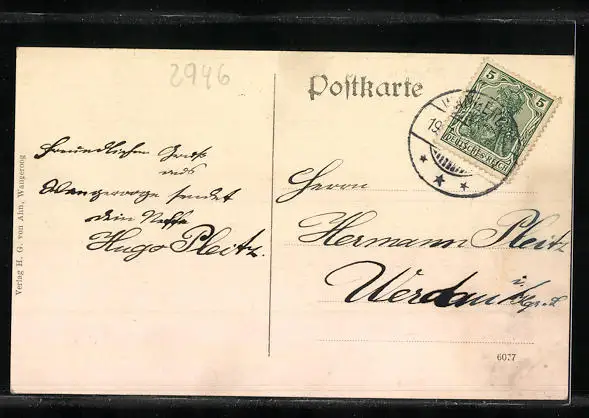 2946
Postkarte
5 5
DEUTSCHES REICH
19
Freundlichen Gruß
aus
Wangerooge sendet
dein Neffe
Hugo Pleitz.
Herrn
Hermann Pleitz
Werdau i/
Verlag H. G. von Ahn, Wangeroog
6077